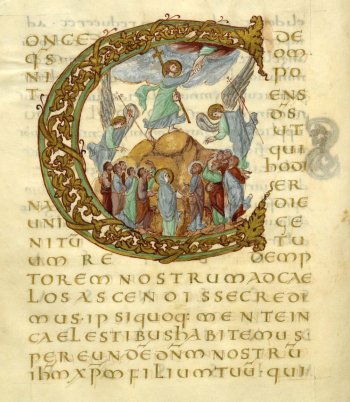 C ONCE DE
QS̄ OM
NI PO
T ENS
D̄S
UT
QUI
HODI
ER
NA DIE
UNI GE
NITŪ TU
UM RE DEMP
TOREM NOSTRUM AD CAE
LOS ASCENDISSE CREDI
MUS · IPSI QUOQ: MENTE IN
CAELESTIBUS HABITEMUS
PER EUNDĒ DN̄M NOSTRŪ
IHM̄ XPM̄ FILIUM TUŪ · QUI